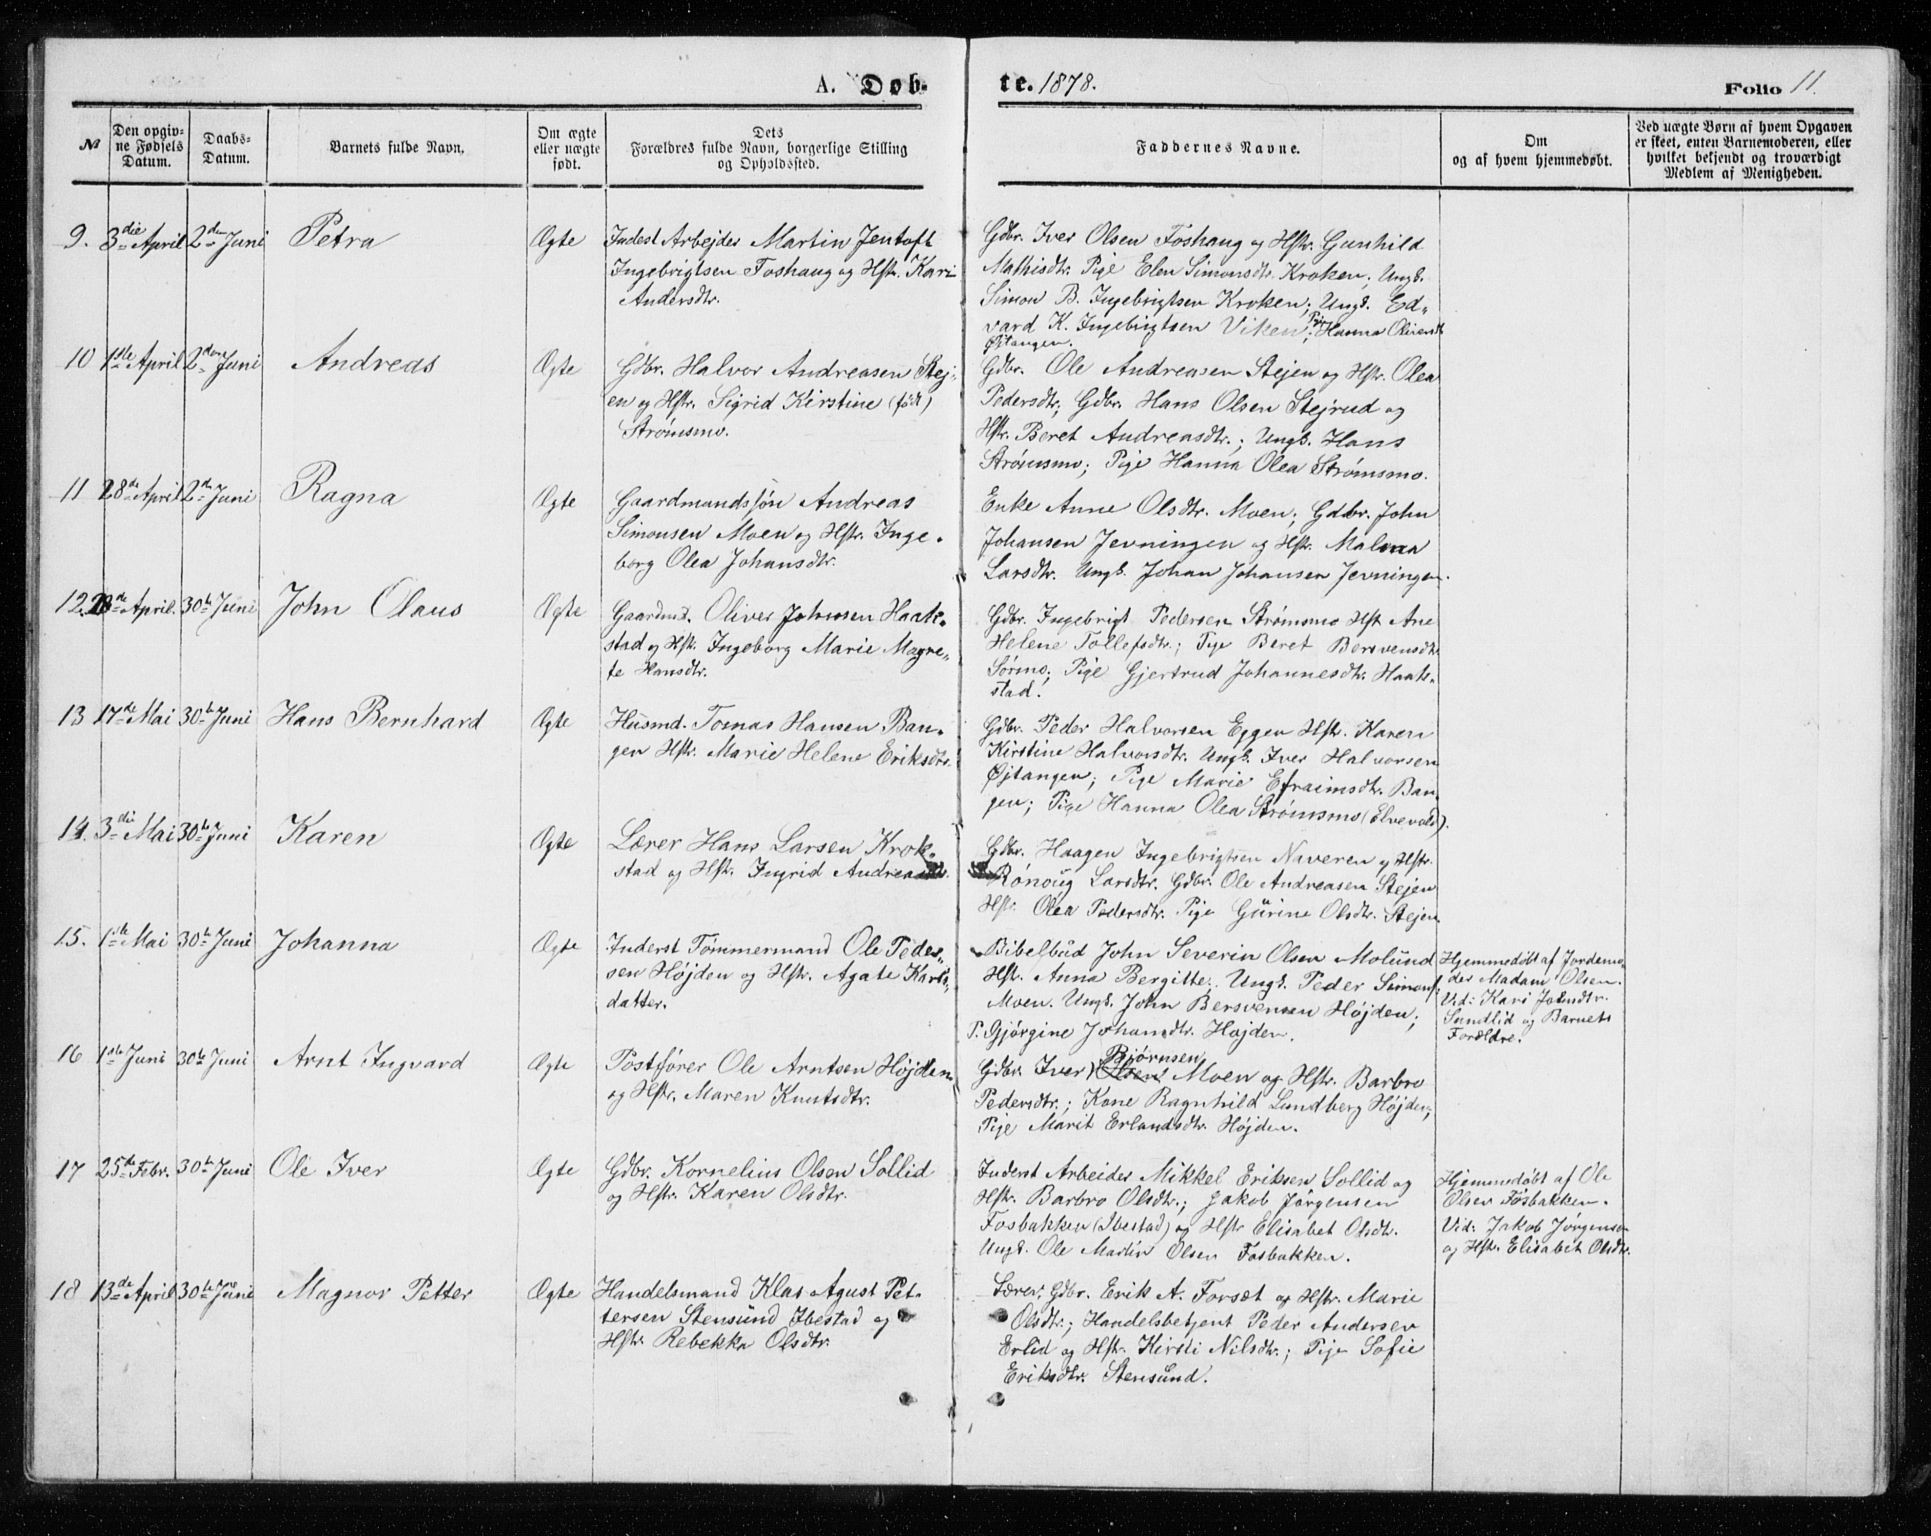 A. Døb-te. 1878.
Folio 11.
№
Den opgiv-
ne Fødsels
Datum.
Daabs-
Datum.
Barnets fulde Navn.
Om ægte
eller uægte
født.
Dets
Forældres fulde Navn, borgerlige Stilling
og Opholdssted.
Faddernes Navne.
Om
og af hvem hjemmedøbt.
Ved uægte Børn af hvem Opgaven
er skeet, enten Barnemoderen, eller
hvilket bekjendt og troværdigt
Medlem af Menigheden.
9. 3die April 2den Juni Petra Ægte
Inderst Arbejder Martin Jentoft
Ingebrigtsen Foshaug og Hstr. Kari
Andersdtr.
Gdbr. Iver Olsen Foshaug og Hstr. Gunhild
Mathisdtr. Pige Elen Simonsdtr. Kroken; Ungk.
Simon B. Ingebrigtsen Kroken; Ungk. Ed-
vard K. Ingebrigtsen Viken; Pige Hanna Oliversdtr
Øjtangen.
10 1ste April 2den Juni Andreas Ægte
Gdbr. Halvor Andreasen Stej-
en og Hstr. Sigrid Kirstine (født)
Strømsmo.
Gdbr. Ole Andreasen Stejen og Hstr. Olea
Pedersdtr; Gdbr. Hans Olsen Stejrud og
Hstr. Beret Andreasdtr.; Ungk. Hans
Strømsmo; Pige Hanna Olea Strømsmo.
11 28de April 2den Juni Ragna Ægte
Gaardmandssøn Andreas
Simonsen Moen og Hstr. Inge-
borg Olea Johansdtr.
Enke Anne Olsdtr. Moen; Gdbr. John
Johansen Jevningen og Hstr. Malena
Larsdtr. Ungk. Johan Johansen Jevningen.
12. 28de April. 30te Juni John Olaus Ægte
Gaardmd. Oliver Johnsen Haak-
stad og Hstr. Ingeborg Marie Magre-
te Hansdtr.
Gdbr. Ingebrigt Pedersen Strømsmo Hstr Ane
Helene Tollefsdtr.; Pige Beret Bersvensdtr.
Sørmo; Pige Gjertrud Johannesdtr. Haak-
stad.
13 17de Mai 30te Juni Hans Bernhard Ægte
Husmd. Tomas Hansen Ban-
gen Hstr. Marie Helene Eriksdtr.
Gdbr. Peder Halvorsen Eggen Hstr. Karen
Kirstine Halvorsdtr. Ungk. Iver Halvorsen
Øjtangen; Pige Marie Efraimsdtr. Ban-
gen; Pige Hanna Olea Strømsmo (Elvevold).
14. 3die Mai 30te Juni Karen Ægte
Lærer Hans Larsen Krok-
stad og Hstr. Ingrid Andreasdtr.
Gdbr. Haagen Ingebrigtsen Naveren og Hstr.
Rønoug Larsdtr. Gdbr. Ole Andreasen Stejen
Hstr. Olea Pedersdtr. Pige Gurine Olsdtr. Stejen
15. 1ste Mai 30te Juni Johanna Ægte
Inderst Tømmermand Ole Peder-
sen Højden og Hstr. Agate Karls-
datter.
Bibelbud John Severin Olsen Molund
Hstr. Anna Bergitte. Ungk. Peder Simons.
Moen. Ungk. John Bersvensen Højden;
P. Gjørgine Johansdtr. Højden.
Hjemmedøbt af Jordemo-
der Madam Olsen.
Vid: Kari Johnsdtr.
Sundlid og Barnets
Forældre.
16 1ste Juni 30te Juni Arnt Ingvard Ægte
Postfører Ole Arntsen Højden
og Hstr. Maren Knutsdtr.
Bjørnsen
Gdbr. Iver Moen og Hstr. Barbro
Pedersdtr.; Kone Ragnhild Lundberg Højden;
Pige Marit Erlandsdtr. Højden.
17 25de Febr. 30te Juni Ole Iver Ægte
Gdbr. Kornelius Olsen Sollid
og Hstr. Karen Olsdtr.
Inderst Arbeider Mikkel Eriksen Sollid og
Hstr. Barbro Olsdtr.; Jakob Jørgensen
Fosbakken (Ibestad) og Hstr Elisabet Olsdtr.
Ungk. Ole Martin Olsen Fosbakken.
Hjemmedøbt af Ole
Olsen Fosbakken.
Vid: Jakob Jørgensen
og Hstr. Elisabet Olsdtr.
18 13de April 30te Juni Magnor Petter Ægte
Handelsmand Klas Agust Pet-
tersen Stensund Ibestad og
Hstr. Rebekka Olsdtr.
Lærer, Gdbr. Erik A. Forsæt og Hstr. Marie
Olsdtr.; Handelsbetjent Peder Andersen
Erlid og Hstr. Kirsti Nilsdtr.; Pige Sofie
Eriksdtr. Stensund.